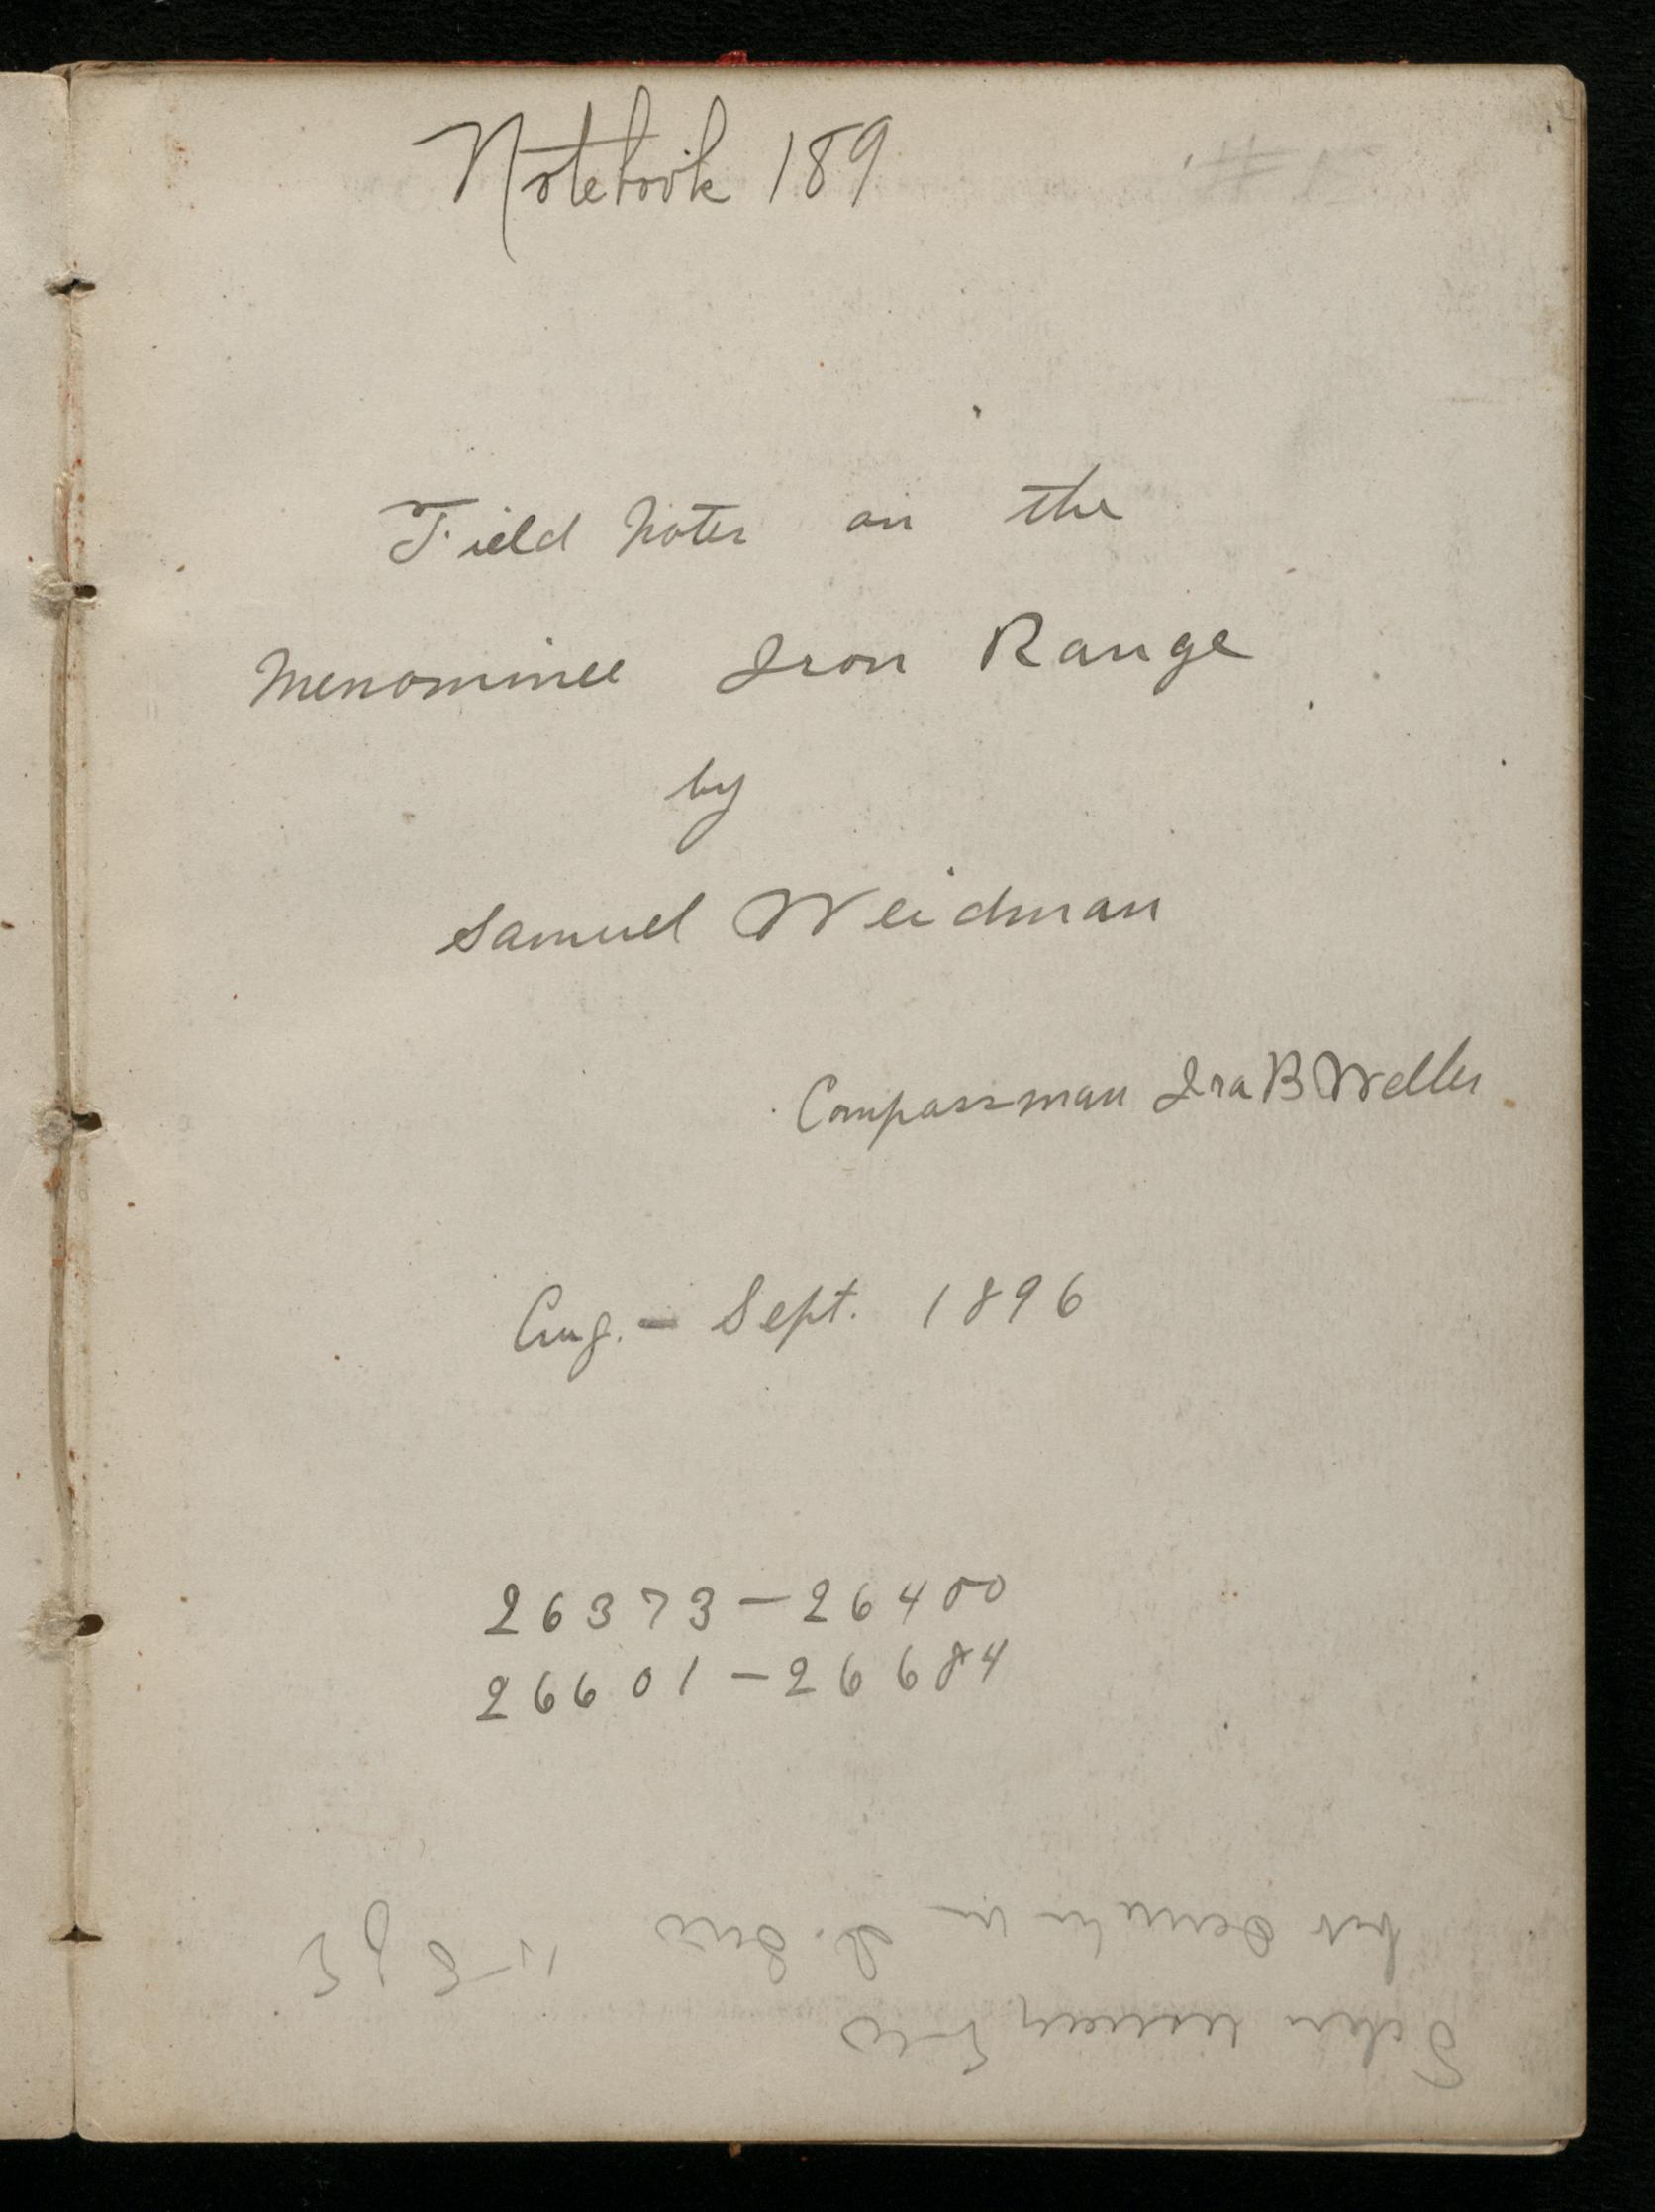 Notebook 189
Field Notes on the
Menominee Iron Range
by
Samuel Weidman
Compassman Ira B Weller
Aug. - Sept. 1896
26373 - 26400
26601 - 26684